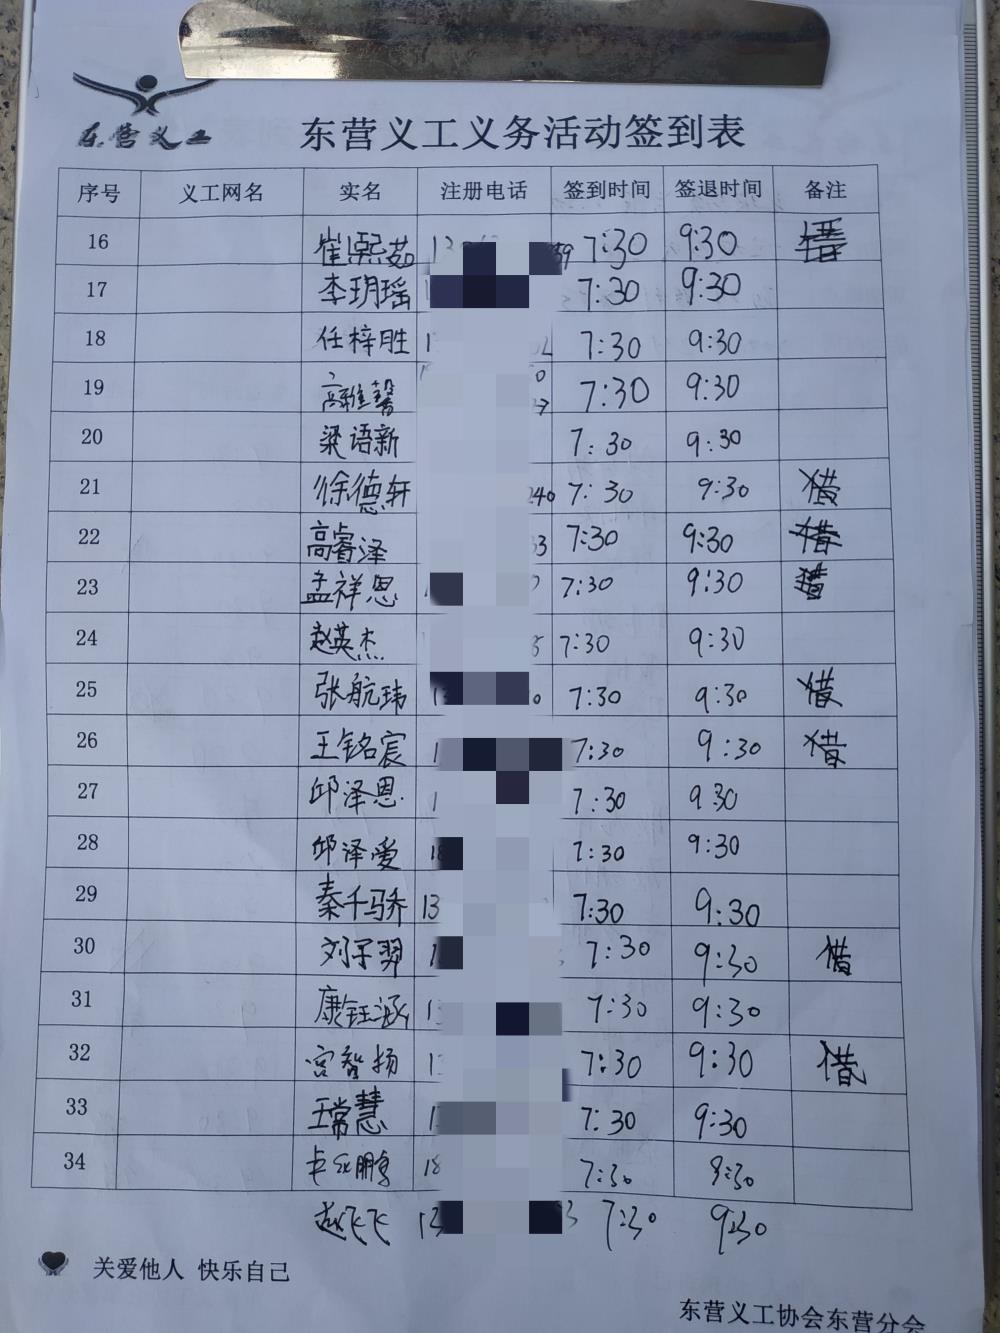 东营义工
东营义工义务活动签到表
序号 义工网名 实名 注册电话 签到时间 签退时间 备注
16 崔熙茹 13 39 7:30 9:30
17 李玥瑶 7:30 9:30
18 任梓胜 1 7:30 9:30
19 高雅馨 7:30 9:30
20 梁语新 7:30 9:30
21 徐德轩 240 7:30 9:30 借
22 高睿泽 33 7:30 9:30
23 孟祥恩 7:30 9:30
24 赵英杰 7:30 9:30
25 张航玮 1 0 7:30 9:30 借
26 王铭宸 1 7:30 9:30 借
27 邱泽恩 1 7:30 9 30
28 邱泽爱 18 7:30 9:30
29 秦千骄 13 7:30 9:30
30 刘子羿 1 7:30 9:30 借
31 康钰涵 1 7:30 9:30
32 宫智扬 1 7:30 9:30 借
33 王常慧 1 7:30 9:30
34 鹏 18 7:30 9:30
赵飞飞 13 3 7:30 9:30
关爱他人 快乐自己
东营义工协会东营分会